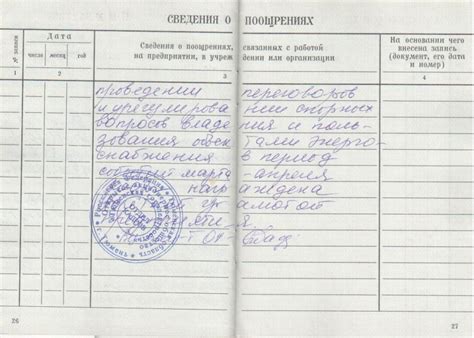 СВЕДЕНИЯ О ПООЩРЕНИЯХ
№ записи
Дата
число
месяц
год
Сведения о поощрениях, связанных с работой
на предприятии, в учреждении или организации
На основании чего
внесена запись
(документ, его дата
и номер)
1 2 3 4
проведении переговоров
и урегулировании спорных
вопросов владения и поль-
зования объектами энерго-
снабжения в период
марта -апреля
награждена
грамотой
26
27